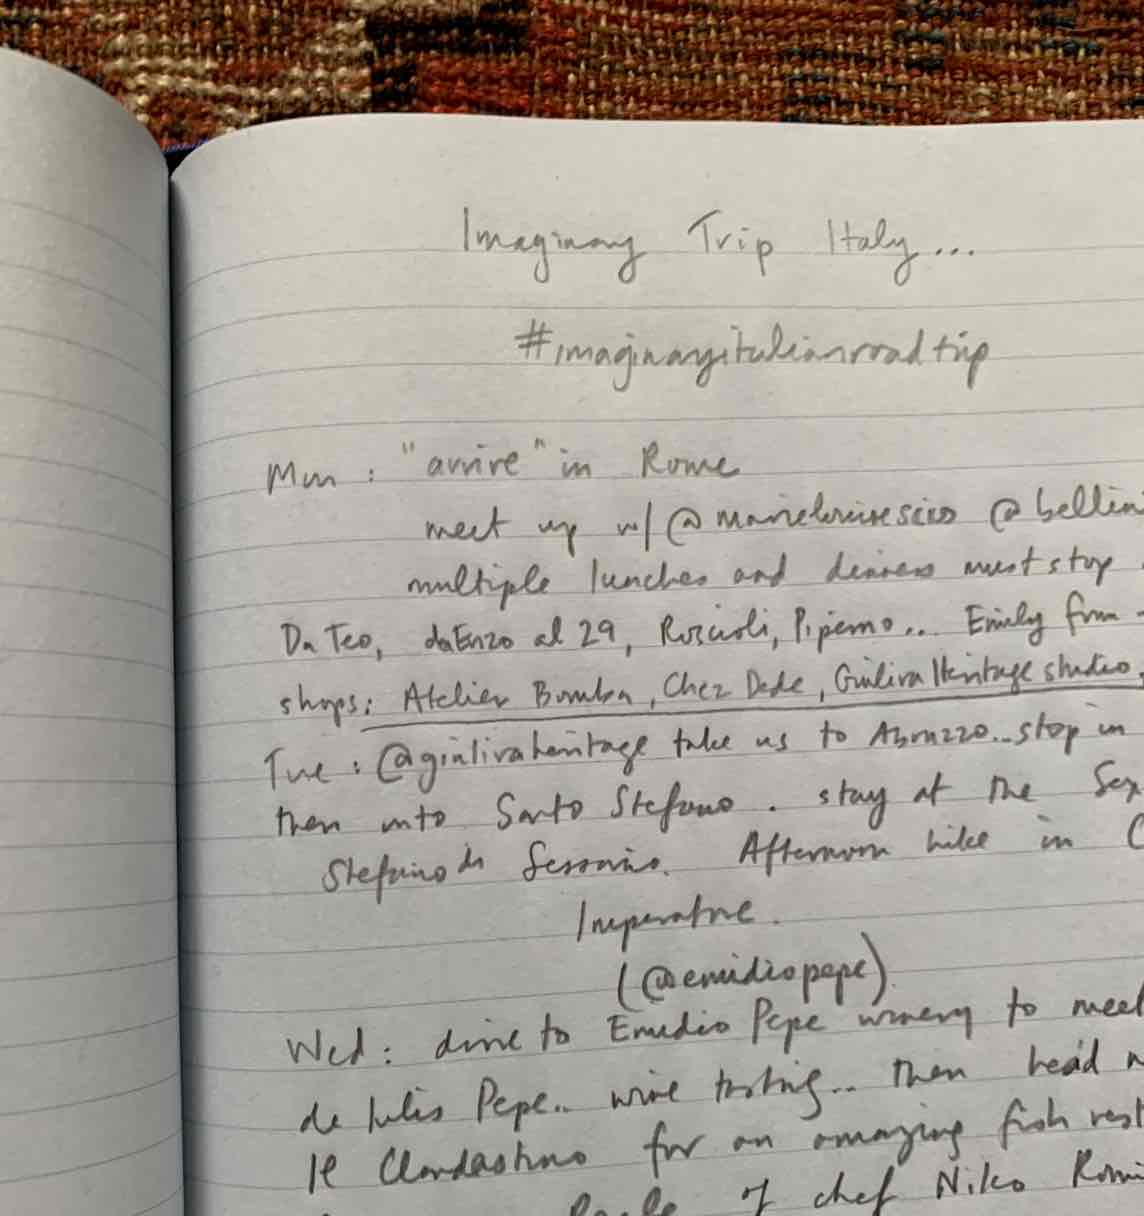 Imaginary Trip Italy...
#imaginaryitalianroadtrip
Mon : "arrive" in Rome
meet up w/ @marielouisescio @bellin
multiple lunches and dinners must stop
Da Teo, da Enzo al 29, Roscioli, Piperno.. Emily from
shops: Atelier Bomba, Chez Dede, Giuliva Heritage studio,
Tue : @giulivaheritage take us to Abruzzo.. stop in
then into Santo Stefano . stay at the Sex
Stefano di Sessanio. Afternoon hike in C
Imperatore.
(@emidiopepe)
Wed : drive to Emidio Pepe winery to meet
de Iulis Pepe.. wine tasting.. then head
Il Clandestino for an amazing fish rest
of chef Niko Romi